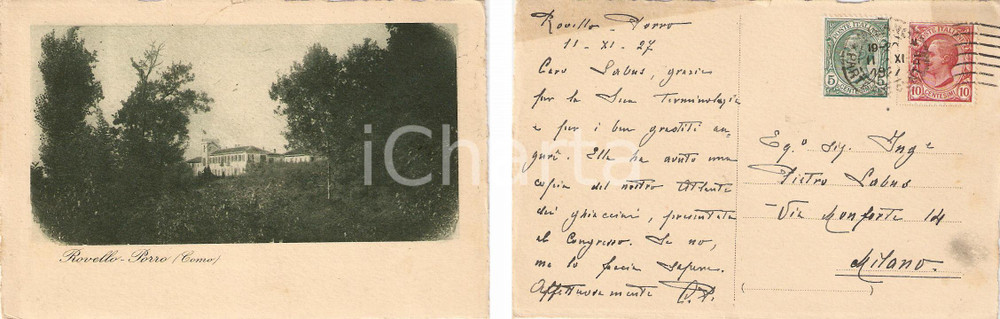 Rovello - Porro (Como)
iCharta
Rovello - Porro
11 - XI - 27
Caro Labus, grazie
per la Sua Terminologia
e per i ben graditi au-
guri. Ella ha avuto una
copia del nostro Atlante
dei ghiacciai, presentata
al Congresso. Se no,
me lo faccia sapere.
Affettuosamente
POSTE ITALIANE
5
CENTESIMI
POSTE ITALIANE
10 CENTESIMI 10
Eg.º sig. Ing.e
Pietro Labus
Via Monforte 14
Milano.